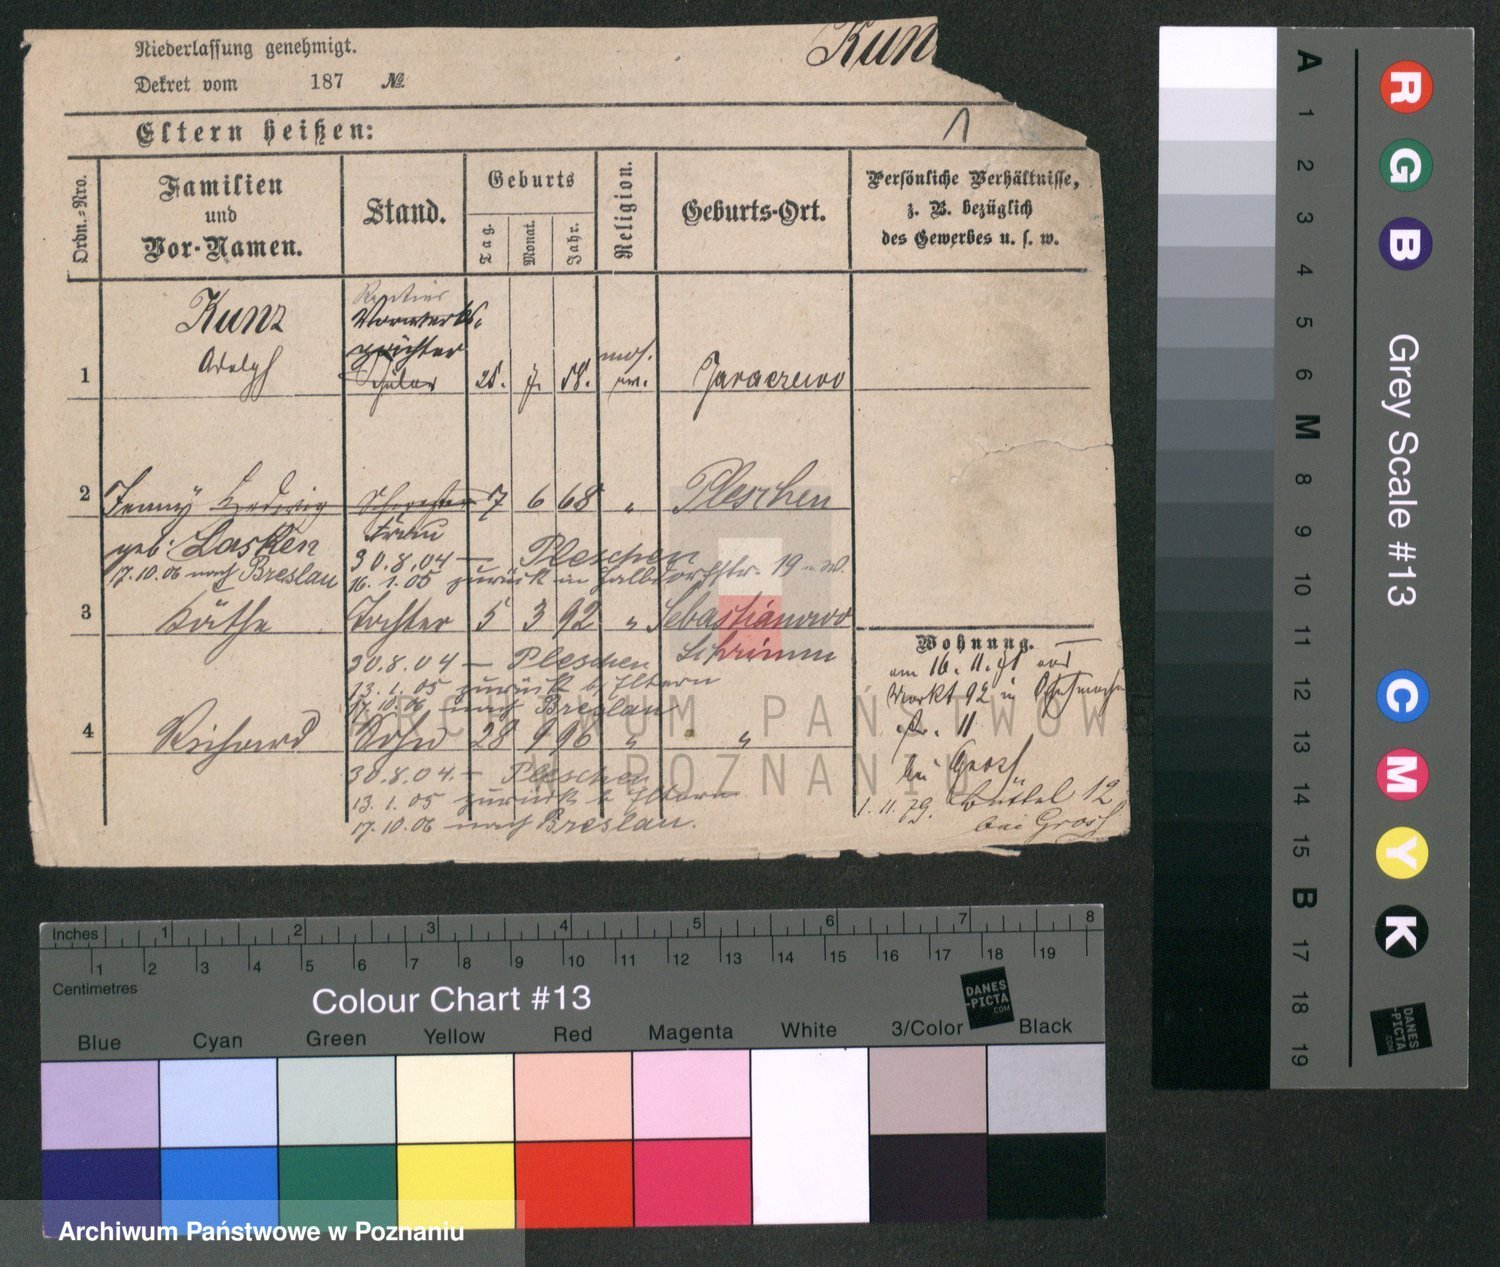 Niederlassung genehmigt.
Kun
Dekret vom 187 №
Eltern heißen:
1
Ordn.-Nro.
Familien
und
Vor-Namen.
Stand.
Geburts
Tag.
Monat.
Jahr.
Religion.
Geburts-Ort.
Persönliche Verhältnisse,
z. B. bezüglich
des Gewerbes u. s. w.
Kunz
Rentier
1 Adolph 58. mos. Jaraczewo
2 Jenny Hedwig Schwester 17 6 68 " Pleschen
geb. Lasken Frau
30.8.04 — Pleschen
17.10.06 nach Breslau
16.1.05 zurück in 19
3 Käthe Tochter 5 3 92 " Sebastianowo
Schrimm
30.8.04 — Pleschen
13.1.05 zurück b. Eltern
17.10.06 nach Breslau
4 Richard Sohn 28 9 96 " "
30.8.04 — Pleschen
13.1.05 zurück b. Eltern
17.10.06 nach Breslau.
Wohnung.
am 16. 11. 71
Markt 92 in
11
bei Grosh
1. 11. 79. Büttel 12
bei Grosh
ARCHIWUM PAŃSTWOWE
W POZNANIU
A 1 2 3 4 5 6 M 8 9 10 11 12 13 14 15 B 17 18 19
Grey Scale #13
R G B C M Y K
DANES
-PICTA
.COM
Inches 1 2 3 4 5 6 7 8
1 2 3 4 5 6 7 8 9 10 11 12 13 14 15 16 17 18 19
Centimetres
Colour Chart #13
DANES
-PICTA
.COM
Blue Cyan Green Yellow Red Magenta White 3/Color Black
Archiwum Państwowe w Poznaniu